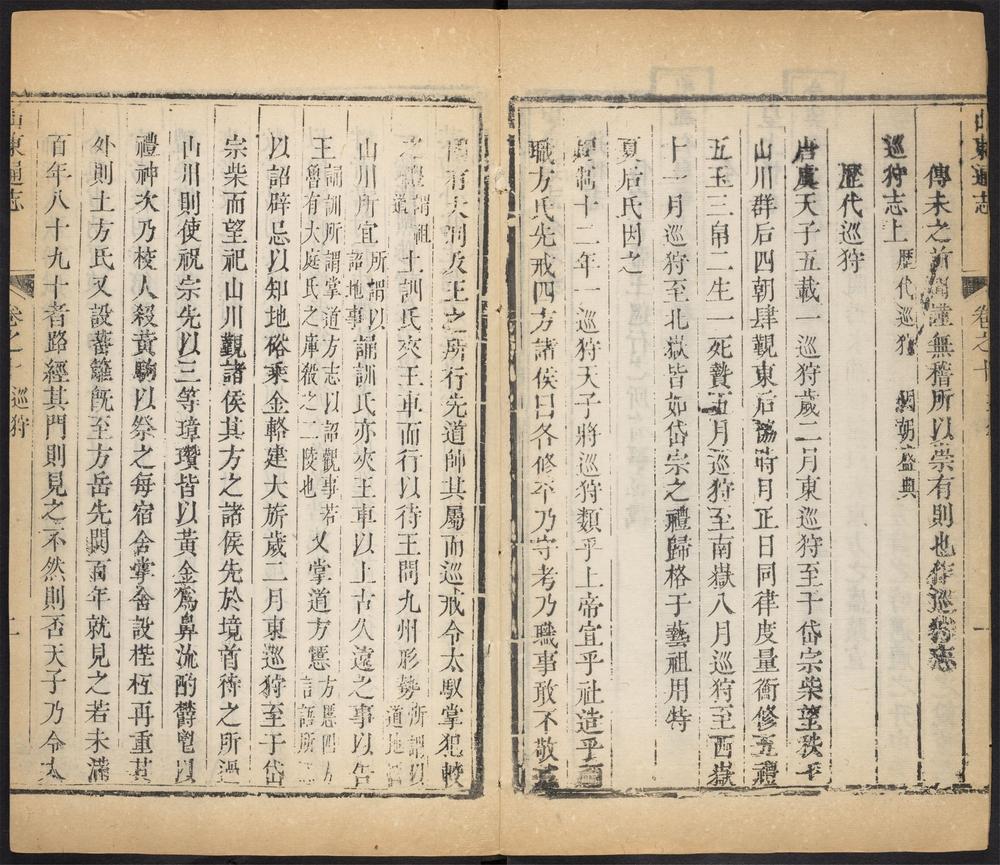 山東通志
卷之十
傳未之前聞謹無稽所以崇有則也作巡狩志
巡狩志上 歷代巡狩 國朝盛典
歷代巡狩
唐虞天子五載一巡狩歲二月東巡狩至于岱宗柴望秩于
山川群后四朝肆覲東后協時月正日同律度量衡修五禮
五玉三帛二生一死贄五月巡狩至南嶽八月巡狩至西嶽
十一月巡狩至北嶽皆如岱宗之禮歸格于藝祖用特
夏后氏因之
周制十二年一巡狩天子將巡狩類乎上帝宜乎社造乎
職方氏先戒四方諸侯曰各修平乃守考乃職事敢不敬
國有大刑及王之所行先道帥其屬而巡戒令太馭掌犯軷
之禮 謂祖道 土訓氏夾王車而行以待王問九州形勢 所謂以道地
山川所宜 所謂以詔地事 誦訓氏亦夾王車以上古久遠之事以告
王 誦訓所謂掌道方志以詔觀事若魯有大庭氏之庫殽之二陵也 又掌道方慝 方慝四方語所
以詔辟忌以知地俗乘金輅建大旂歲二月東巡狩至于岱
宗柴而望祀山川覲諸侯其方之諸侯先於境首待之所過
山川則使祝宗先以三等璋瓚皆以黃金為鼻流酌鬱鬯以
禮神次乃校人殺黃駒以祭之每宿舍掌舍設梐枑再重其
外則土方氏又設蕃籬旣至方岳先問百年就見之若未滿
百年八十九十者路經其門則見之不然則否天子乃令太
山東通志
卷之十 巡狩
二